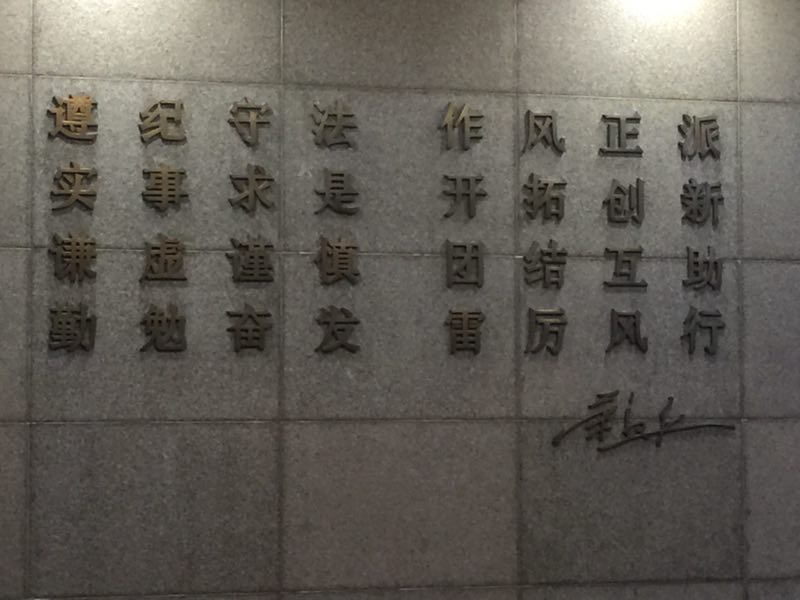 遵纪守法 作风正派
实事求是 开拓创新
谦虚谨慎 团结互助
勤勉奋发 雷厉风行